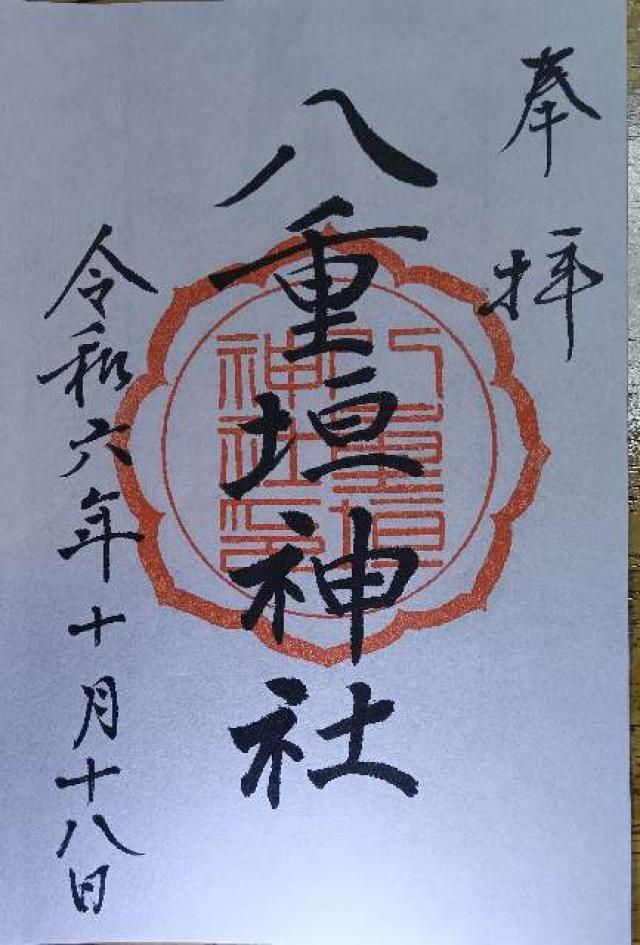 奉拝
八重垣神社
八重垣
神社印
令和六年十月十八日